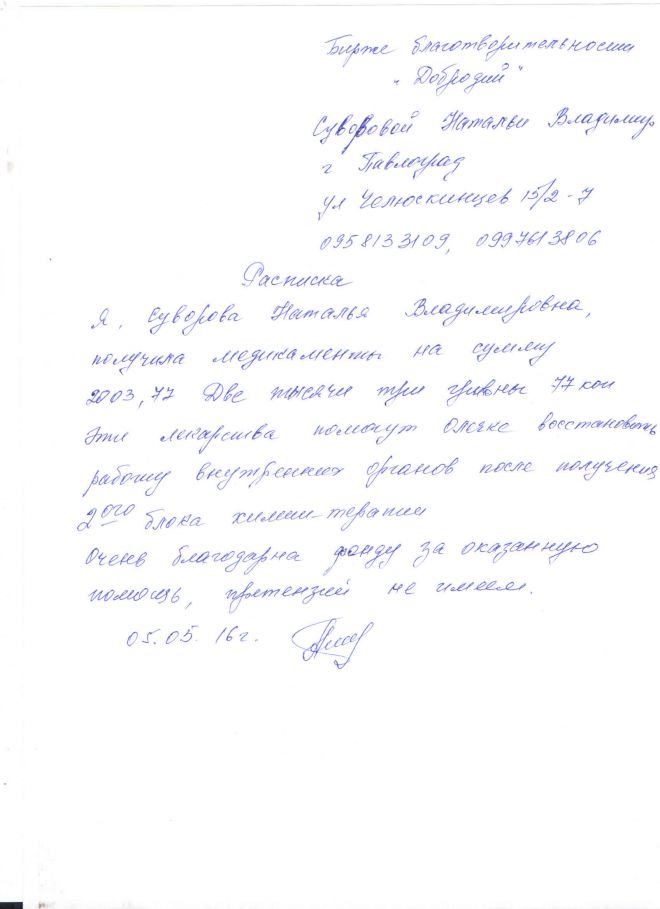 Бирже благотворительности
"Добродий"
Суворовой Натальи Владимир
г Павлоград
ул Челюскинцев 15/2-7
0958133109, 0997613806
Расписка
Я, Суворова Наталья Владимировна,
получила медикаменты на сумму
2003,77 Две тысячи три гривны 77 коп
Эти лекарства помогут Олечке восстановить
работу внутренних органов после получения
2ого блока химии-терапии
Очень благодарна фонду за оказанную
помощь, претензий не имеем.
05.05.16г.